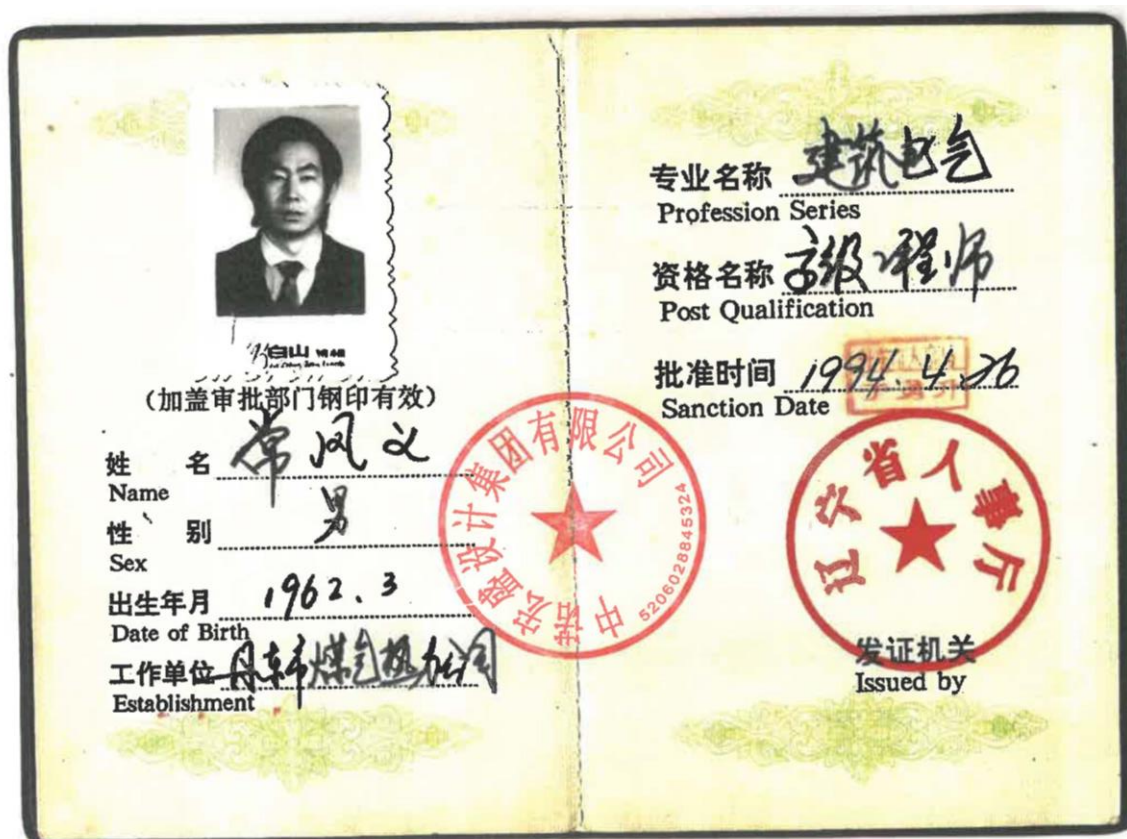 白山
(加盖审批部门钢印有效)
姓 名 常风义
Name
性 别 男
Sex
出生年月 1962.3
Date of Birth
工作单位 丹东市煤气热力公司
Establishment
中梧宏盛设计集团有限公司
5206028845324
专业名称 建筑电气
Profession Series
资格名称 高级工程师
Post Qualification
批准时间 1994.4.26
Sanction Date
辽宁省人事厅
发证机关
Issued by